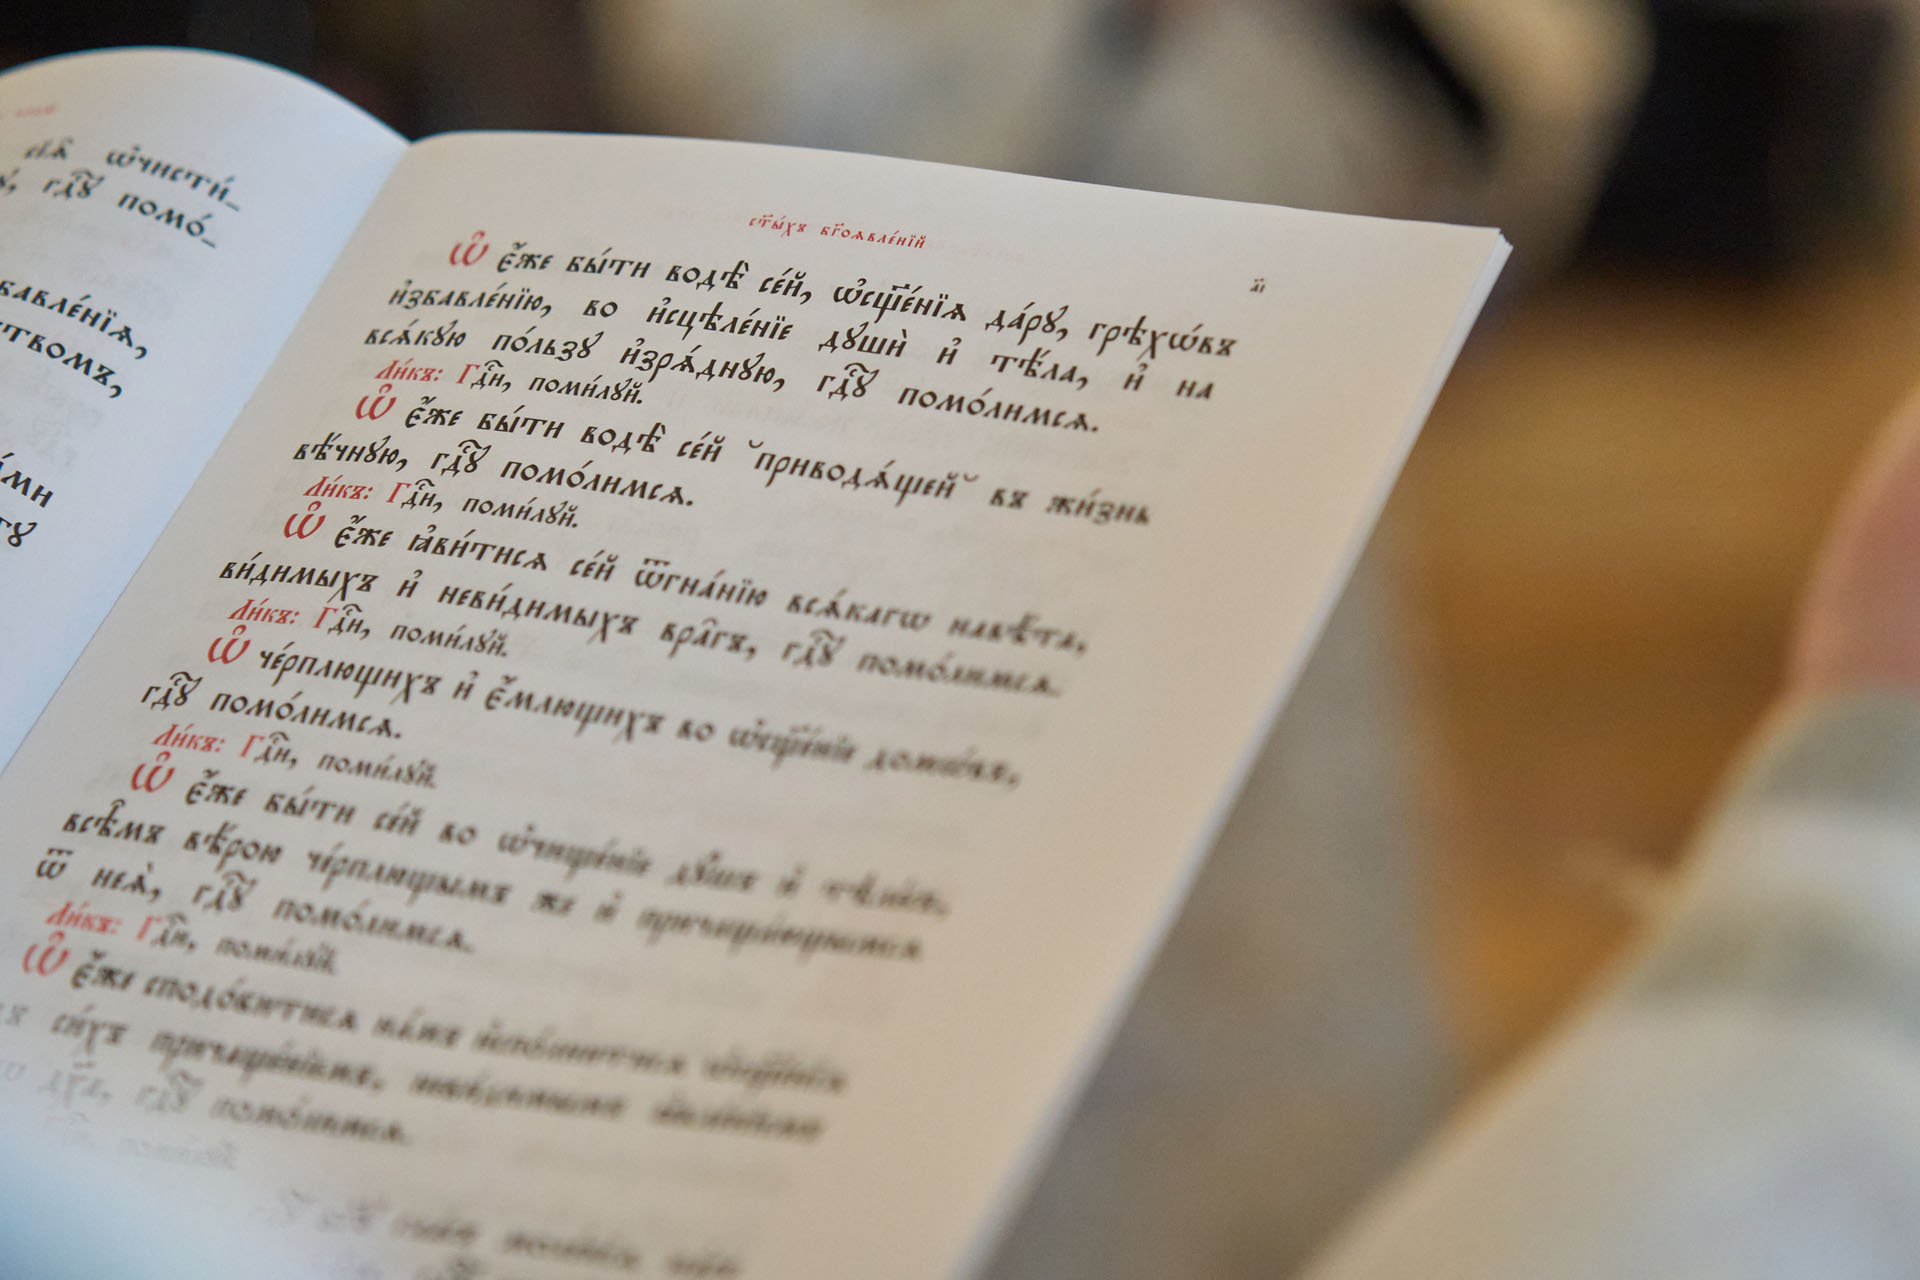 сїѧ҄ ѡ҆чисти́_
гдⷭ҇ꙋ помо́_
бавле́нїѧ,
ствомъ,
а́ми
ст҃ы́хъ бг҃оѧвле́нїй
а҃і
Ѡ҆ є҆́же бы́ти водѣ̀ се́й, ѡ҆сщ҃е́нїѧ да́рꙋ, грѣхѡ́въ
и҆збавле́нїю, во и҆сцѣле́нїе дꙋшѝ и҆ тѣ́ла, и҆ на
всѧ́кꙋю по́льзꙋ и҆зрѧ́днꙋю, гдⷭ҇ꙋ помо́лимсѧ.
Ли́къ: Гдⷭ҇и, поми́лꙋй.
Ѡ҆ є҆́же бы́ти водѣ̀ се́й ˘приводѧ́щей˘ въ жи́знь
вѣ́чнꙋю, гдⷭ҇ꙋ помо́лимсѧ.
Ли́къ: Гдⷭ҇и, поми́лꙋй.
Ѡ҆ є҆́же ꙗ҆ви́тисѧ се́й ѿгна́нїю всѧ́кагѡ навѣ́та,
ви́димыхъ и҆ неви́димыхъ вра̑гъ, гдⷭ҇ꙋ помо́лимсѧ.
Ли́къ: Гдⷭ҇и, поми́лꙋй.
Ѡ҆ че́рплющихъ и҆ є҆́млющихъ во ѡ҆сщ҃е́нїе домѡ́въ,
гдⷭ҇ꙋ помо́лимсѧ.
Ли́къ: Гдⷭ҇и, поми́лꙋй.
Ѡ҆ є҆́же бы́ти се́й во ѡ҆чище́нїе дꙋ́шъ и҆ тѣле́съ,
всѣ̑мъ вѣ́рою че́рплющымъ же и҆ причаща́ющымсѧ
ѿ неѧ̀, гдⷭ҇ꙋ помо́лимсѧ.
Ли́къ: Гдⷭ҇и, поми́лꙋй.
Ѡ҆ є҆́же сподо́битисѧ на́мъ и҆спо́лнитисѧ ѡ҆сщ҃е́нїѧ
си́хъ причаще́нїемъ,
гдⷭ҇ꙋ помо́лимсѧ.